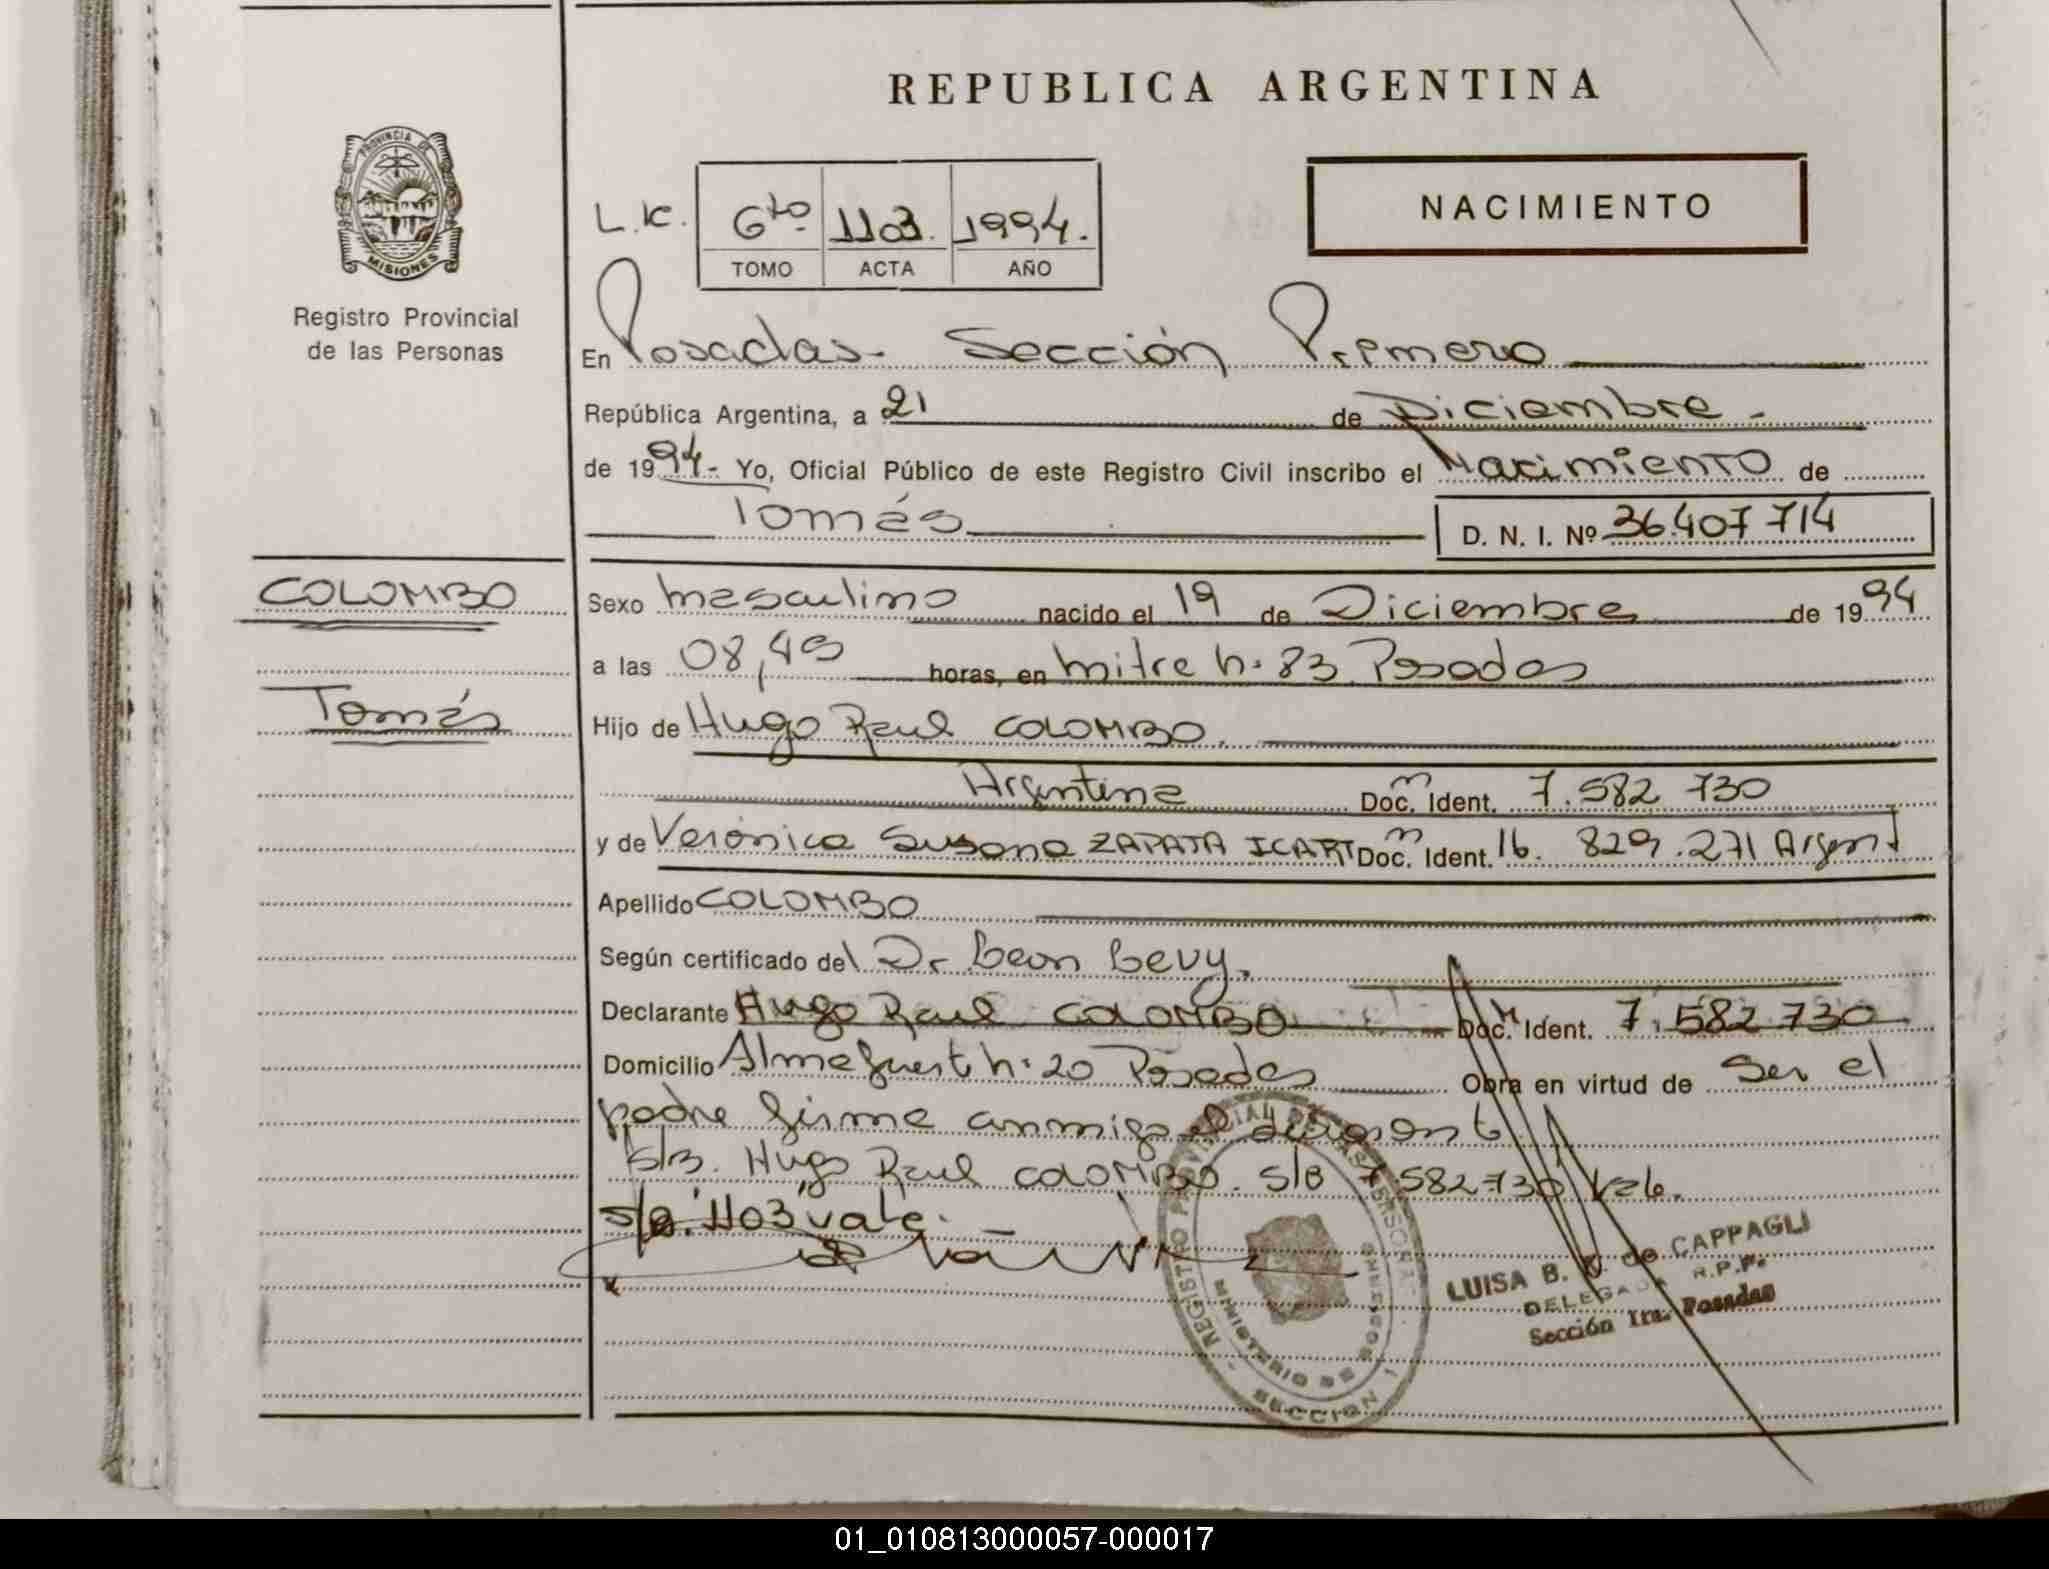 REPUBLICA ARGENTINA
PROVINCIA DE
MISIONES
Registro Provincial
de las Personas
L.K. 6to 1103. 1994.
TOMO ACTA AÑO
NACIMIENTO
En Posadas. Sección Primera
República Argentina, a 21 de Diciembre.
de 1994- Yo, Oficial Público de este Registro Civil inscribo el Nacimiento de
Tomás D. N. I. Nº 36.407 714
COLOMBO
Tomás
Sexo masculino nacido el 19 de Diciembre de 1994
a las 08,45 horas, en mitre n: 83 Posadas
Hijo de Hugo Raul COLOMBO.
Argentina Doc. Ident. 7.582 730
y de Verónica Susana ZAPATA ICART Doc. Ident. 16. 829.271 Argent
Apellido COLOMBO
Según certificado del Dr Leon Levy.
Declarante Hugo Raul COLOMBO Doc. Ident. 7.582 730
Domicilio Almafuerte n: 20 Posadas Obra en virtud de Ser el
padre firma conmigo el
s/B. Hugo Raul COLOMBO. s/B 7 582730
"1103" vale.
REGISTRO PROVINCIAL DE LAS PERSONAS
MINISTERIO DE
SECCION 1
LUISA B. de CAPPAGLI
DELEGADA R.P.P.
Sección 1ra. Posadas
01_010813000057-000017